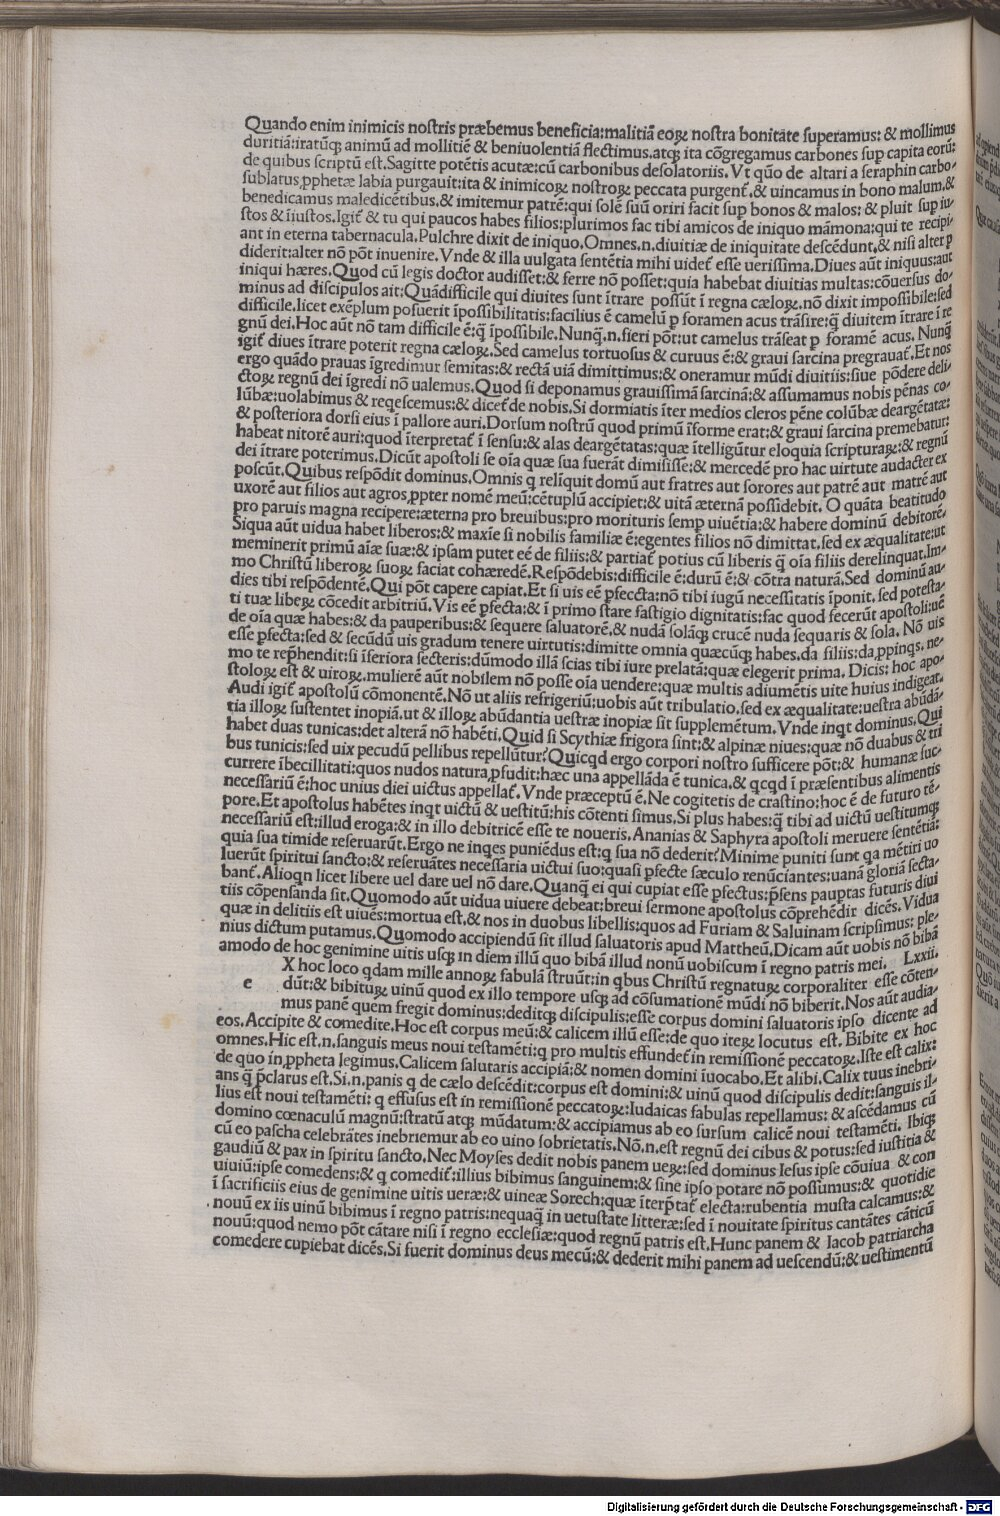 Quando enim inimicis nostris præbemus beneficia:malitiā eoꝝ nostra bonitate superamus: & mollimus
duritiā:iratūq; animū ad mollitiē & beniuolentiā flectimus.atq; ita cōgregamus carbones sup capita eorū:
de quibus scriptū est.Sagitte potētis acutæ:cū carbonibus desolatoriis.Vt quo de altari a seraphin carbo-
sublatus,pphetæ labia purgauit:ita & inimicoꝝ nostroꝝ peccata purgent.& uincamus in bono malum.&
benedicamus maledicētibus.& imitemur patrē:qui solē suū oriri facit sup bonos & malos: & pluit sup iu-
stos & iiustos.Igit & tu qui paucos habes filios:plurimos fac tibi amicos de iniquo māmona:qui te recipi-
ant in eterna tabernacula.Pulchre dixit de iniquo.Omnes.n.diuitiæ de iniquitate descēdunt.& nisi alter p
diderit:alter nō pōt inuenire.Vnde & illa uulgata sentētia mihi uidet esse uerissima.Diues aūt iniquus:aut
iniqui hæres.Quod cū legis doctor audisset:& ferre nō posset:quia habebat diuitias multas:cōuersus do-
minus ad discipulos ait:Quādifficile qui diuites sunt ītrare possūt ī regna cæloꝝ.nō dixit impossibile:sed
difficile.licet exēplum posuerit īpossibilitatis:facilius ē camelū p foramen acus trāsire:q̄ diuitem ītrare ī re
gnū dei.Hoc aūt nō tam difficile ē:q̄ īpossibile.Nunq̄.n.fieri pōt:ut camelus trāseat p foramē acus. Nunq̄
igit diues ītrare poterit regna cæloꝝ.Sed camelus tortuosus & curuus ē:& graui sarcina pregrauat.Et nos
ergo quādo prauas īgredimur semitas:& rectā uiā dimittimus:& oneramur mūdi diuitiis:siue pōdere deli-
ctoꝝ regnū dei īgredi nō ualemus.Quod si deponamus grauissimā sarcinā:& assumamus nobis pēnas co-
lūbæ:uolabimus & reqescemus:& dicet de nobis.Si dormiatis īter medios cleros pēne colūbæ deargētatæ:
& posteriora dorsi eius ī pallore auri.Dorsum nostrū quod primū īforme erat:& graui sarcina premebatur:
habeat nitorē auri:quod īterpretat ī sensu:& alas deargētatas:quæ ītelligūtur eloquia scripturaꝝ:& regnū
dei ītrare poterimus.Dicūt apostoli se oīa quæ sua fuerāt dimisisse:& mercedē pro hac uirtute audacter ex
poscūt.Quibus respōdit dominus.Omnis q relīquit domū aut fratres aut sorores aut patrē aut matrē aut
uxorē aut filios aut agros,ppter nomē meū:cētuplū accipiet:& uitā æternā possidebit. O quāta beatitudo
pro paruis magna recipere:æterna pro breuibus:pro morituris semp uiuētia:& habere dominū debitorē.
Siqua aūt uidua habet liberos:& maxīe si nobilis familiæ ē:egentes filios nō dimittat.sed ex æqualitate:ut
meminerit primū aīæ suæ:& ipsam putet eē de filiis:& partiat potius cū liberis q̄ oīa filiis derelinquat.Im-
mo Christū liberoꝝ suoꝝ faciat cohæredē.Respōdebis:difficile ē:durū ē:& cōtra naturā.Sed dominū au-
dies tibi respōdentē.Qui pōt capere capiat.Et si uis eē pfeccta:nō tibi iugū necessitatis īponit.sed potesta-
ti tuæ liberꝝ cōcedit arbitriū.Vis eē pfecta:& ī primo stare fastigio dignitatis:fac quod fecerūt apostoli:uē
de oīa quæ habes:& da pauperibus:& sequere saluatorē.& nudā solāq; crucē nuda sequaris & sola. Nō uis
esse pfecta:sed & secūdū uis gradum tenere uirtutis:dimitte omnia quæcūq; habes.da filiis:da,ppinqs. ne-
mo te rephendit:si īferiora secteris:dūmodo illā scias tibi iure prelatā:quæ elegerit prima. Dicis: hoc apo-
stoloꝝ est & uiroꝝ.mulierē aūt nobilem nō posse oīa uendere:quæ multis adiumētis uite huius indigeat.
Audi igit apostolū cōmonentē.Nō ut aliis refrigeriū:uobis aūt tribulatio.sed ex æqualitate:uestra abūdā-
tia illoꝝ sustentet inopiā.ut & illoꝝ abūdantia uestræ inopiæ sit supplemētum.Vnde inqt dominus.Qui
habet duas tunicas:det alterā nō habēti.Quid si Scythiæ frigora sint:& alpinæ niues:quæ nō duabus & tri
bus tunicis:sed uix pecudū pellibus repellūtur?Quicqd ergo corpori nostro sufficere pōt:& humanæ suc-
currere ībecillitati:quos nudos natura,psudit:hæc una appellāda ē tunica.& qcqd ī præsentibus alimentis
necessariū ē:hoc unius diei uictus appellat.Vnde præceptū ē.Ne cogitetis de crastino:hoc ē de futuro tē-
pore.Et apostolus habētes inqt uictū & uestitū:his cōtenti simus.Si plus habes:q̄ tibi ad uictū uestitumq;
necessariū est:illud eroga:& in illo debitricē esse te noueris.Ananias & Saphyra apostoli meruere sentētiā:
quia sua timide reseruarūt.Ergo ne inqes puniēdus est:q sua nō dederit?Minime puniti sunt qa mētiri uo
luerūt spiritui sancto:& reseruātes necessaria uictui suo:quasi pfecte sæculo renūciantes:uanā gloriā secta-
bant.Alioqn licet libere uel dare uel nō dare.Quanq̄ ei qui cupiat esse pfectus:psens paupertas futuris diui
tiis cōpensanda sit.Quomodo aūt uidua uiuere debeat:breui sermone apostolus cōprehēdir dicēs.Vidua
quæ in delitiis est uiuēs:mortua est.& nos in duobus libellis:quos ad Furiam & Saluinam scripsimus: ple-
nius dictum putamus.Quomodo accipiendū sit illud saluatoris apud Mattheū.Dicam aūt uobis nō bibā
amodo de hoc genimine uitis usq; in diem illū quo bibā illud nouū uobiscum ī regno patris mei. Lxxii.
e X hoc loco qdam mille annoꝝ fabulā struūt:in qbus Christū regnatuꝝ corporaliter esse cōten-
dūt:& bibituꝝ uinū quod ex illo tempore usq; ad cōsumationē mūdi nō biberit.Nos aūt audia-
mus panē quem fregit dominus:deditq; discipulis:esse corpus domini saluatoris ipso dicente ad
eos.Accipite & comedite.Hoc est corpus meū:& calicem illū esse:de quo iteꝝ locutus est. Bibite ex hoc
omnes.Hic est.n.sanguis meus noui testamēti:q pro multis effundet in remissionē peccatoꝝ.Iste est calix:
de quo in,ppheta legimus.Calicem salutaris accipiā:& nomen domini īuocabo.Et alibi.Calix tuus inebri-
ans q̄ pclarus est.Si.n.panis q de cælo descēdit:corpus est domini:& uinū quod discipulis dedit:sanguis il-
lius est noui testamēti: q effusus est in remissionē peccatoꝝ:Iudaicas fabulas repellamus: & ascēdamus cū
domino cœnaculū magnū:stratū atq; mūdatum:& accipiamus ab eo sursum calicē noui testamēti. Ibiq;
cū eo pascha celebrātes inebriemur ab eo uino sobrietatis.Nō.n.est regnū dei cibus & potus:sed iustitia &
gaudiū & pax in spiritu sancto.Nec Moyses dedit nobis panem ueꝝ:sed dominus Iesus ipse cōuiua & con
uiuiū:ipse comedens:& q comedit:illius bibimus sanguinem:& sine ipso potare nō possumus:& quotidie
ī sacrificiis eius de genimine uitis ueræ:& uineæ Sorech:quæ īterptat electa:rubentia musta calcamus:&
nouū ex iis uinū bibimus ī regno patris:nequaq̄ in uetustate litteræ:sed ī nouitate spiritus cantātes cāticū
nouū:quod nemo pōt cātare nisi ī regno ecclesiæ:quod regnū patris est.Hunc panem & Iacob patriarcha
comedere cupiebat dicēs.Si fuerit dominus deus mecū:& dederit mihi panem ad uescendū:& uestimentū
Digitalisierung gefördert durch die Deutsche Forschungsgemeinschaft - DFG